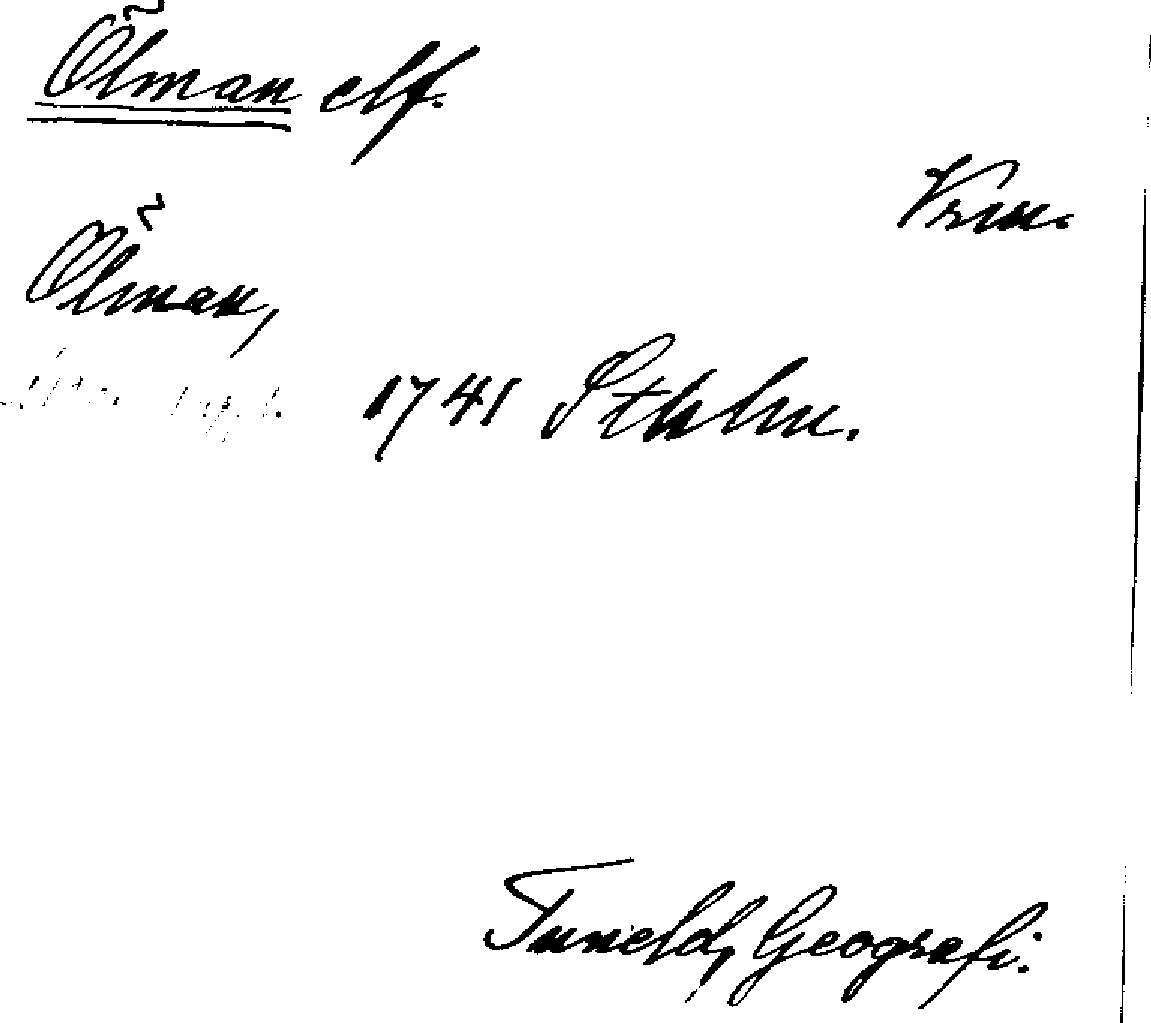 Õlman elf.
Vrm.
Õlman,
1741 Sthlm.
Tuneld, Geografi.